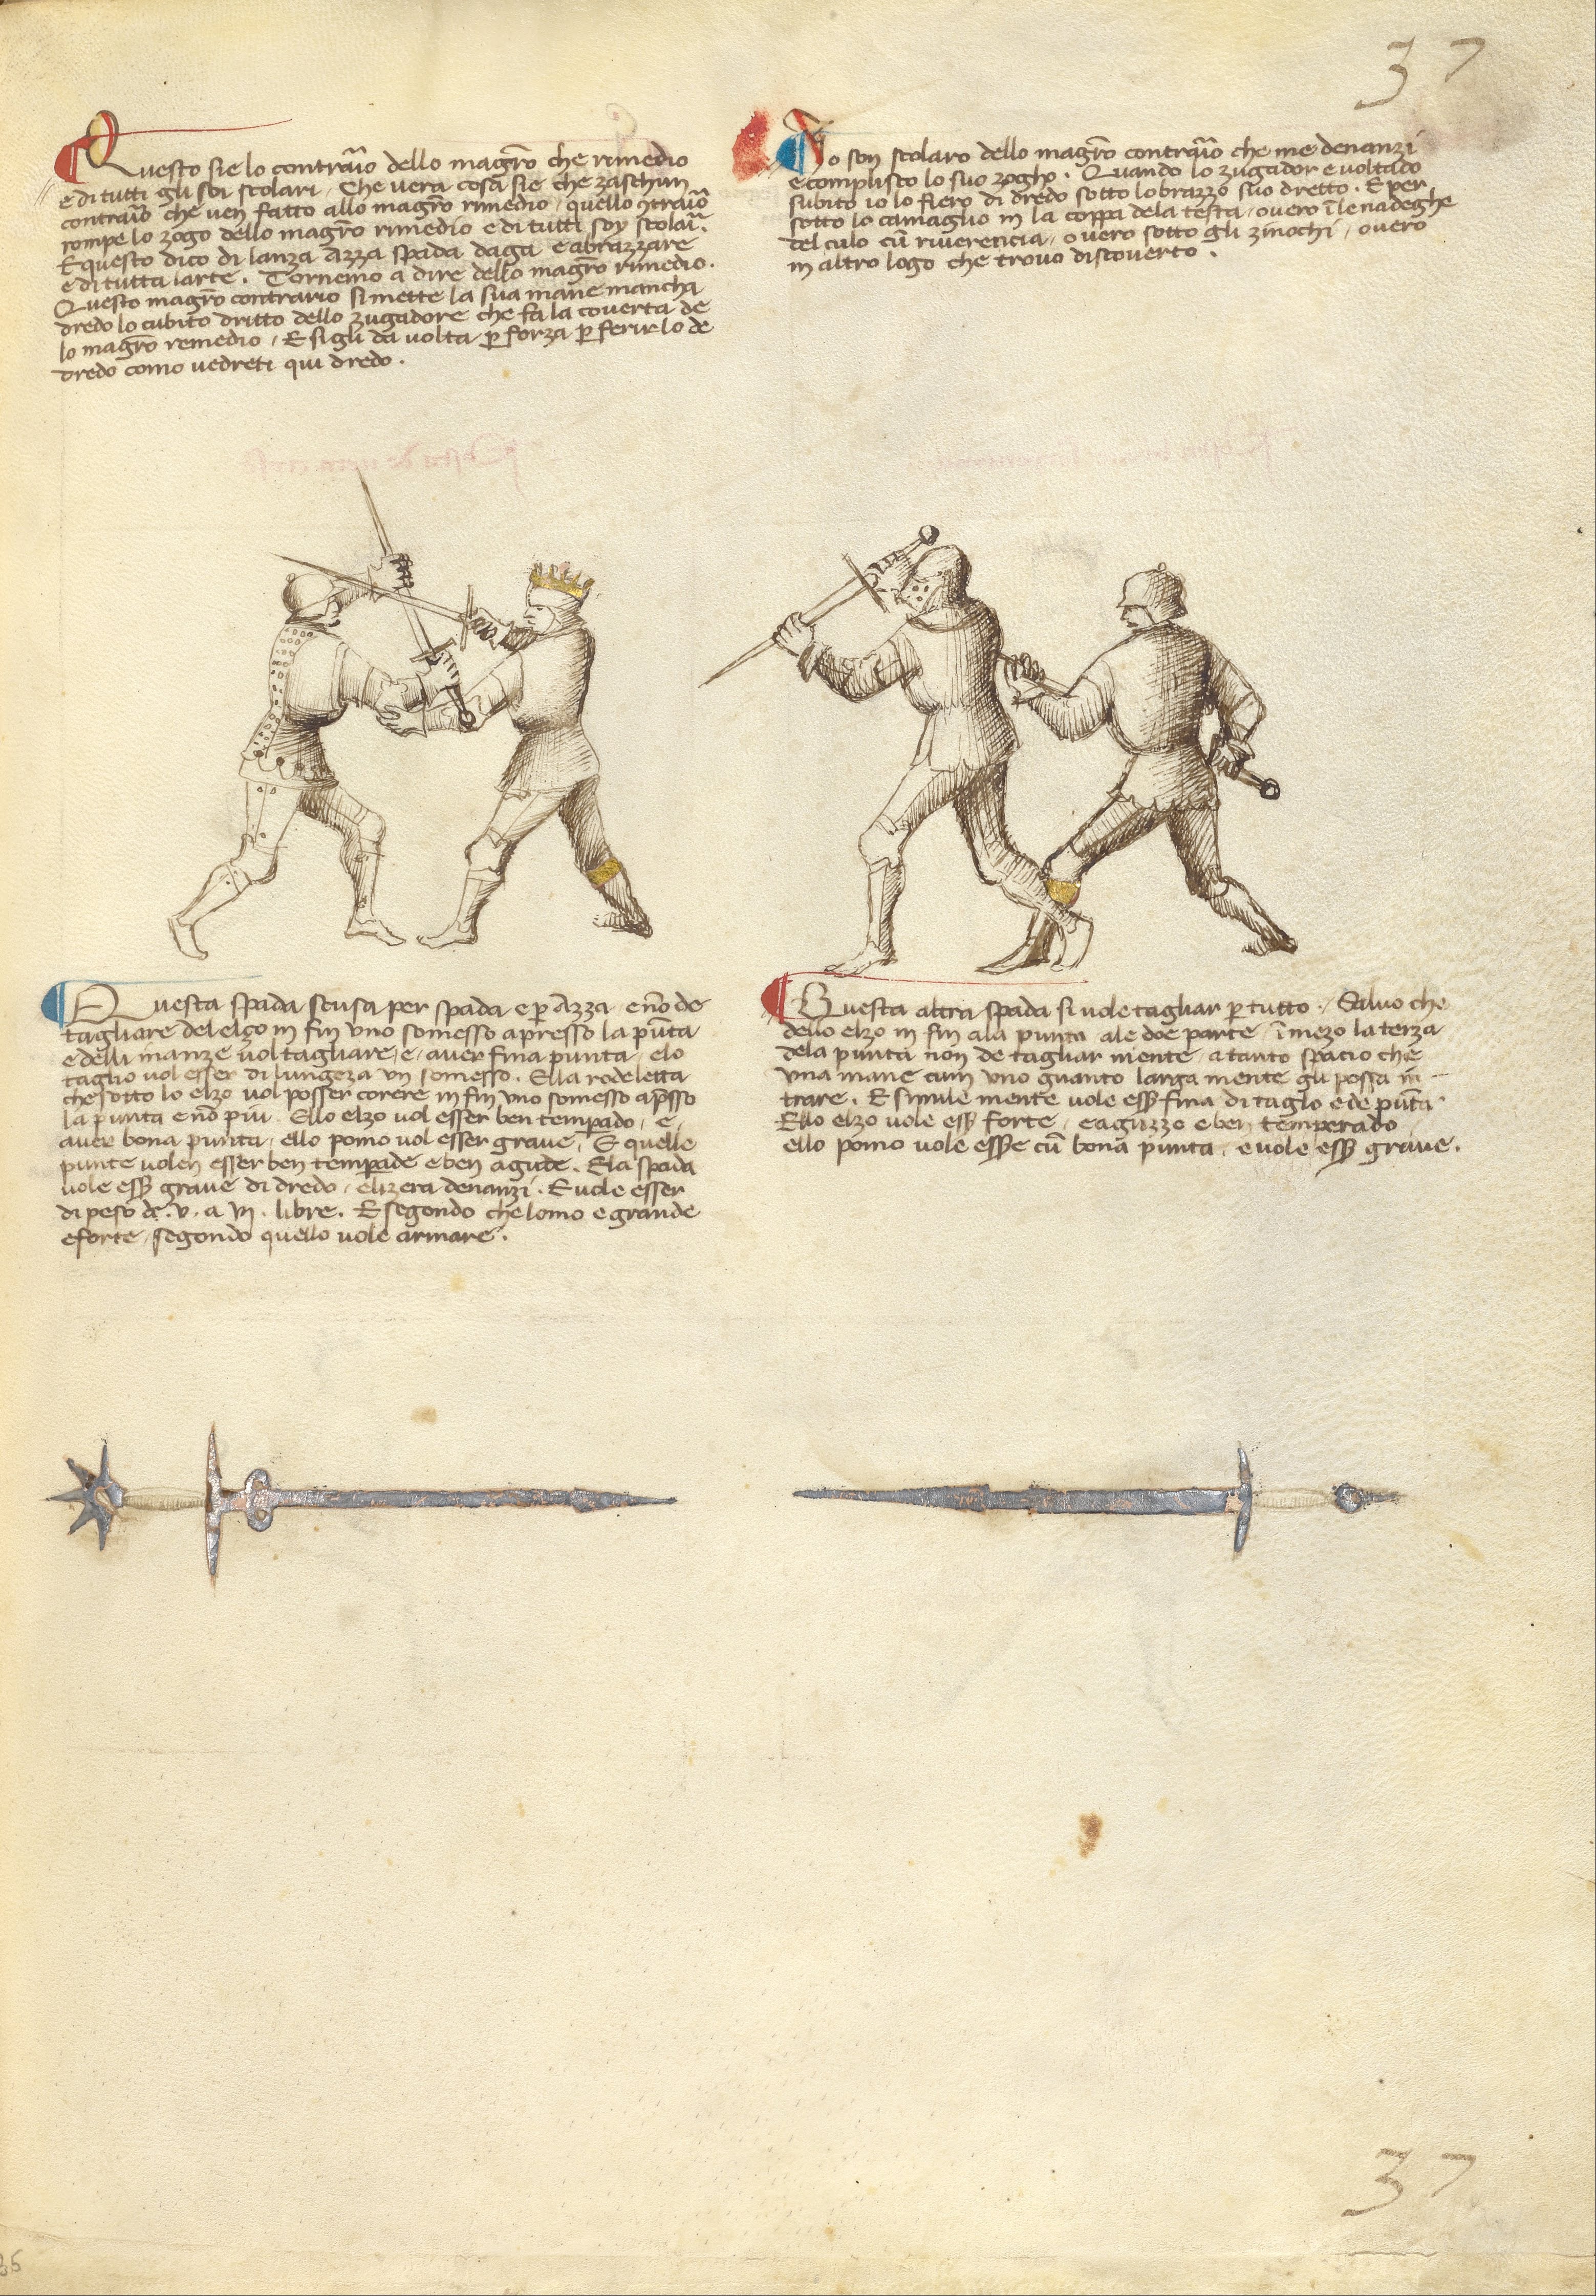 37
Questo sie lo contrario dello magistro che rimedio
e di tutti gli soi scolari. Che vera cosa sie che zaschun
contrario che ven fatto allo magistro rimedio, quello contrario
rompe lo zogo dello magistro rimedio e di tutti soy scolari.
E questo dico di lanza Azza spada daga e abrazzare
e di tutta larte. Tornemo a dire dello magistro rimedio.
Questo magistro contrario si mette la sua mane mancha
dredo lo cubito dritto dello zugadore che fa la coverta de
lo magistro remedio, E si gli dà volta per forza per ferirlo de
dredo como vedreti qui dredo.
Io son scolaro dello magistro contrario che me denanzi
e complisco lo suo zogho. Quando lo zugador e voltado
subito io lo fiero di dredo sotto lo brazzo suo dretto. E per
sotto lo camaglio in la coppa dela testa, overo in le nadeghe
del culo cum riverencia, overo sotto gli zinochi, overo
in altro logo che trovo discoverto.
Questa spada scusa per spada e per Azza e non de
tagliare del elço in fin uno somesso apresso la punta
e delli inanze vol tagliare, e aver fina punta, elo
taglio vol esser di lungeza un somesso. Ella rodeletta
che sotto lo elzo vol posser corere in fin uno somesso apresso
la punta e non più. Ello elzo vol esser ben tempado, e
aver bona punta, ello pomo vol esser grave, E quelle
punte volen esser ben temprade e ben agude. Ela spada
vole esser grave di dredo, elizera denanzi. E vole esser
di peso de .v. a vij. libre. E segondo che lomo e grande
e forte, segondo quello vole armare.
Questa altra spada si vole tagliar per tutto. Salvo che
dello elzo in fin ala punta ale doe parte, in mezo la terza
dela punta non de tagliar niente, a tanto spacio che
una mane cum uno guanto larga mente gli possa in
trare. E simile mente vole esser fina di taglo e de punta.
Ello elzo vole esser forte, e aguzzo e ben temperado
ello pomo vole esse cum bona punta, e vole esser grave.
37